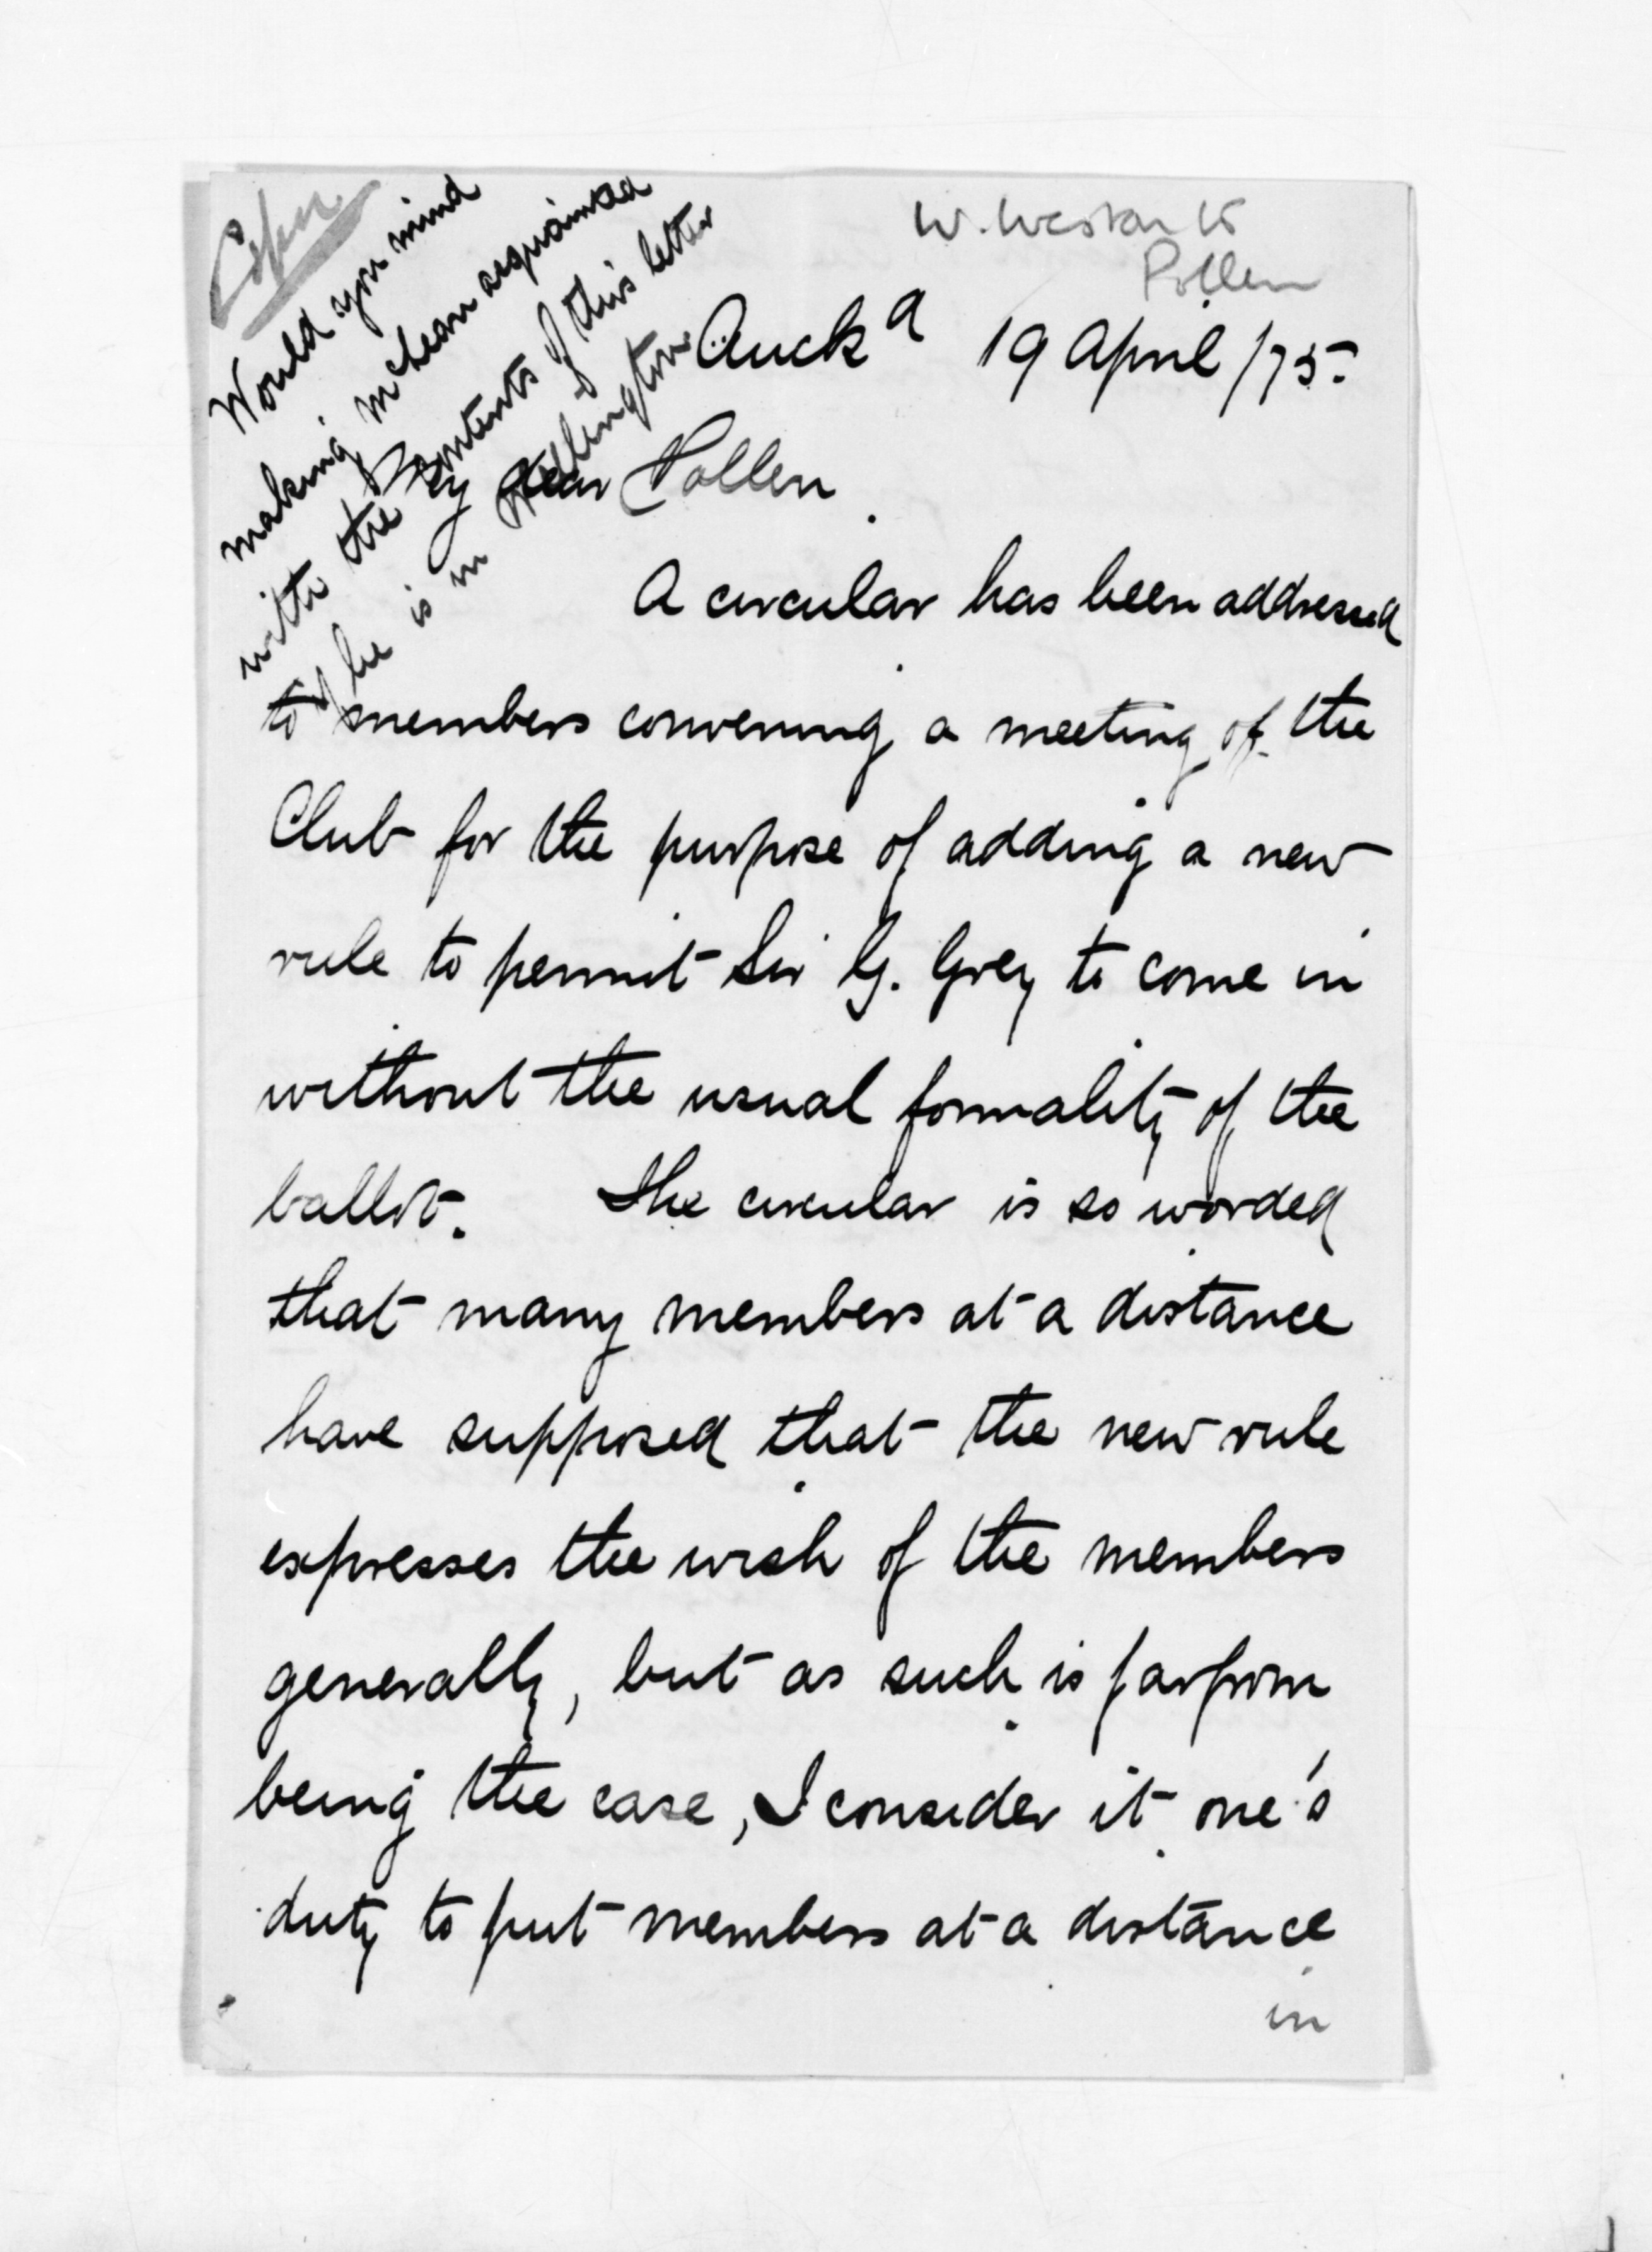 Copy
Would you mind
making McLean acquainted
with the contents of this letter
if he is in Wellington
Pollen
Auckd 19 April /75.
My dear Pollen
A circular has been addressed
to members convening a meeting of the
Club for the purpose of adding a new
rule to permit Sir G. Grey to come in
without the usual formality of the
ballot. The circular is so worded
that many members at a distance
have supposed that the new rule
expresses the wish of the members
generally, but as such is far from
being the case, I consider it one's
duty to put members at a distance
in